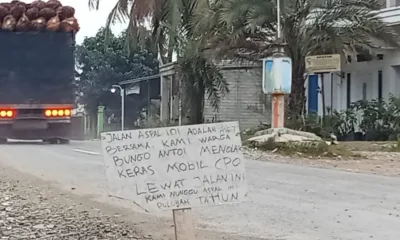 JALAN ASPAL INI ADALAH ASET
BERSAMA. KAMI WARGA
BUNGO ANTOI MENOLAK
KERAS MOBIL CPO
LEWAT JALAN INI
KAMI NUNGGU ASPAL INI
PULUHAN TAHUN